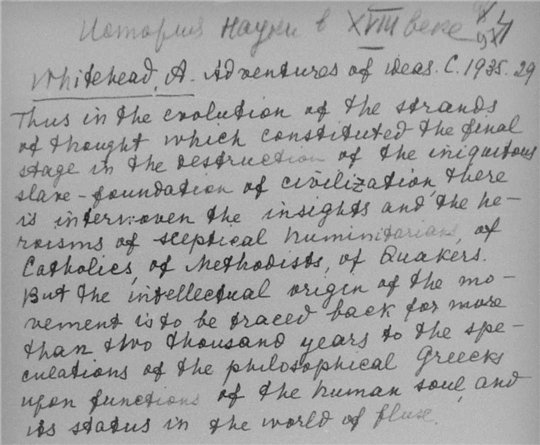 История науки в XVIII веке
Whitehead, A. Adventures of ideas. C. 1935. 29
Thus in the evolution of the strands
of thought which constituted the final
stage in the destruction of the iniquitous
slave-foundation of civilization, there
is interwoven the insights and the he-
roisms of sceptical huminitarians, of
Catholics, of Methodists, of Quakers.
But the intellectual origin of the mo-
vement is to be traced back for more
than two thousand years to the spe-
culations of the philosophical Greecks
upon functions of the human soul, and
its status in the world of flux.